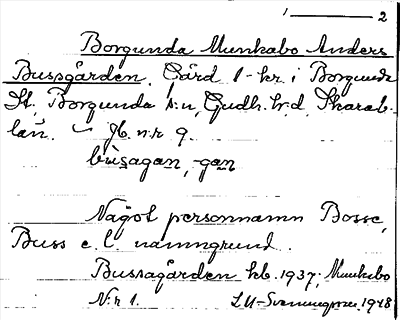 1 ——— 2
Borgunda Munkabo Anders
Bussgården. Gård 1-kr. i Borgunda
St. Borgunda s:n, Gudh. hd, Skarab.
län. Jb. nr 9.
bùsagan, -gan
Något personnamn Bosse,
Buss e. l. namngrund.
Bussagården kb. 1937; Munkabo
N:r 1. LU-Svenungsson 1948